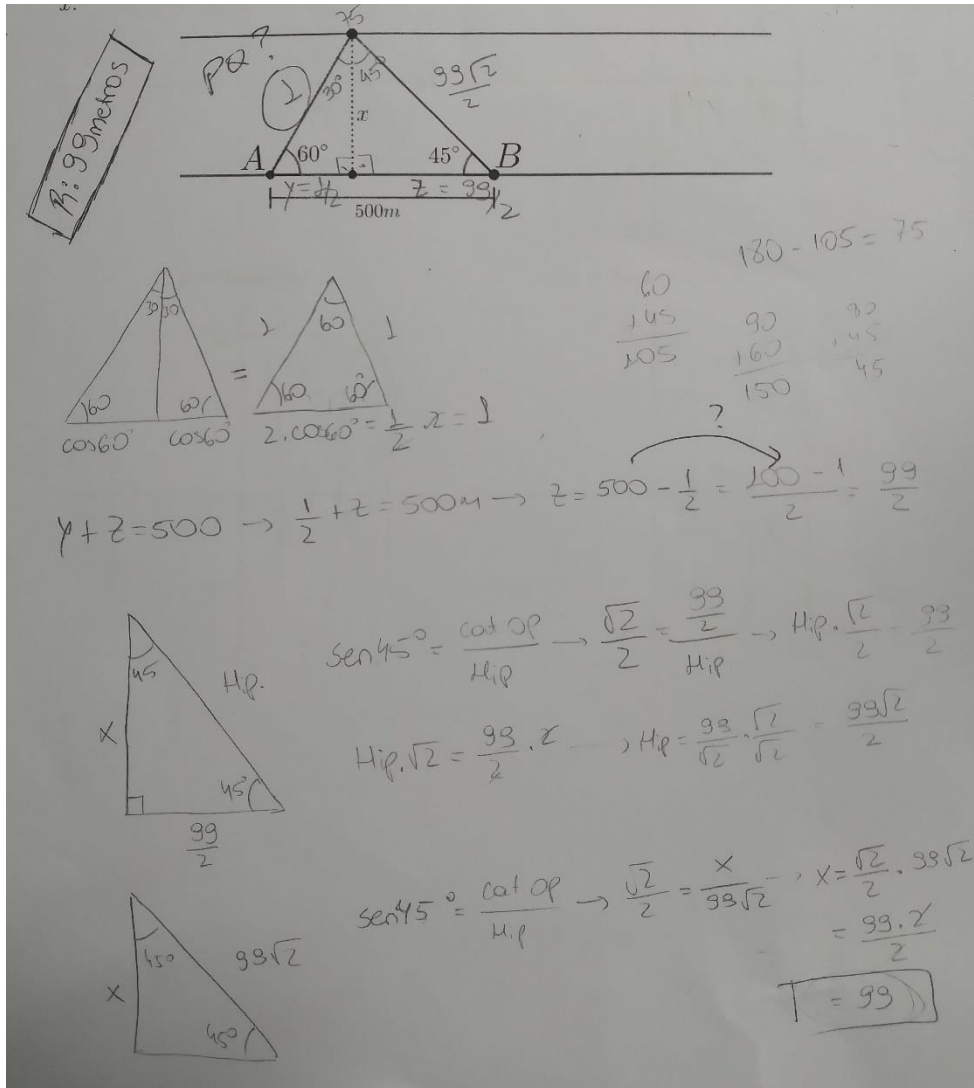 x.
R: 99 metros
PQ?
75
1
30°
45°
x
99√2/2
A
60°
45°
B
y = 1/2
z = 99/2
500m
180 - 105 = 75
60
+45
105
90
+60
150
90
+45
45
30
30
60
60
cos60° cos60°
=
1
1
60
60
60°
2.cos60° = 1/2 .2 = 1
?
y + z = 500 → 1/2 + z = 500m → z = 500 - 1/2 = (100 - 1)/2 = 99/2
45
Hip.
x
45°
99/2
sen45° = cat op/Hip → √2/2 = (99/2)/Hip → Hip.√2/2 = 99/2
Hip.√2 = 99/2 . 2 → Hip = 99/√2 . √2/√2 = 99√2/2
45°
99√2
x
45°
sen45° = cat op/Hip → √2/2 = x/99√2 → x = √2/2 . 99√2
= 99.2/2
= 99